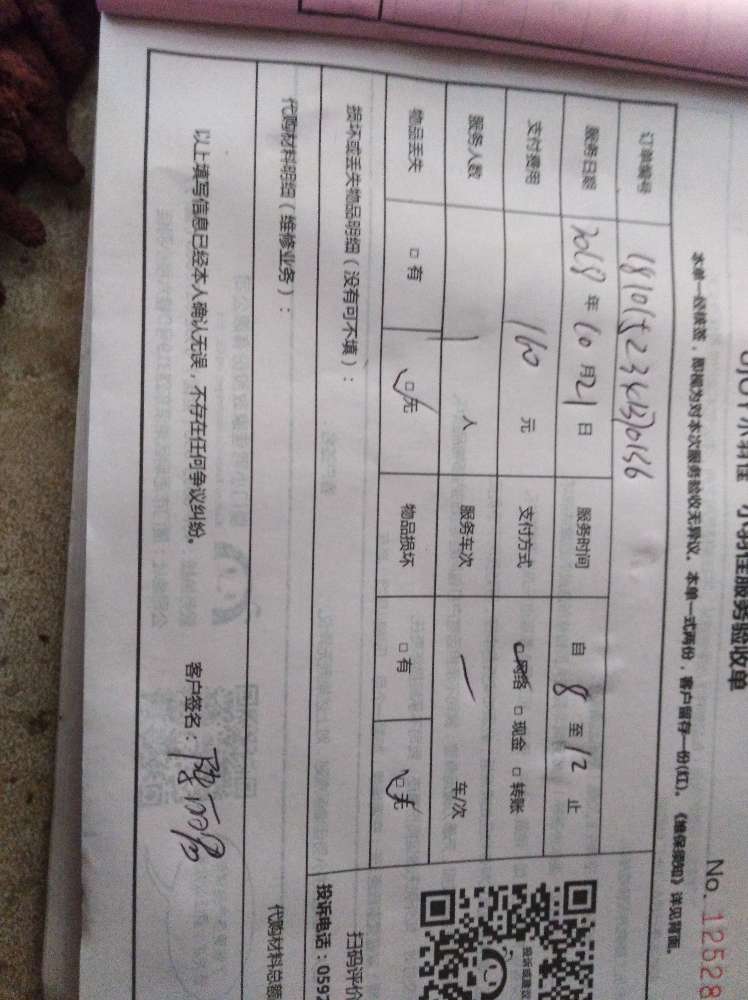 服务验收单
No. 12528
本单一经接签，即视为对本次服务验收无异议。本单一式两份，客户留存一份(红)。《维保须知》详见背面。
订单编号
服务日期 2018 年 10 月 21 日 服务时间 自 8 至 12 止
支付费用 160 元 支付方式 □网络 □现金 □转账
服务人数 1 人 服务车次 一 车/次
物品丢失 □有 □无 物品损坏 □有 □无
损坏或丢失物品明细（没有可不填）：
扫码评价
投诉电话：059
代购材料明细（维修业务）：
代购材料总额
以上填写信息已经本人确认无误，不存在任何争议纠纷。 客户签名：